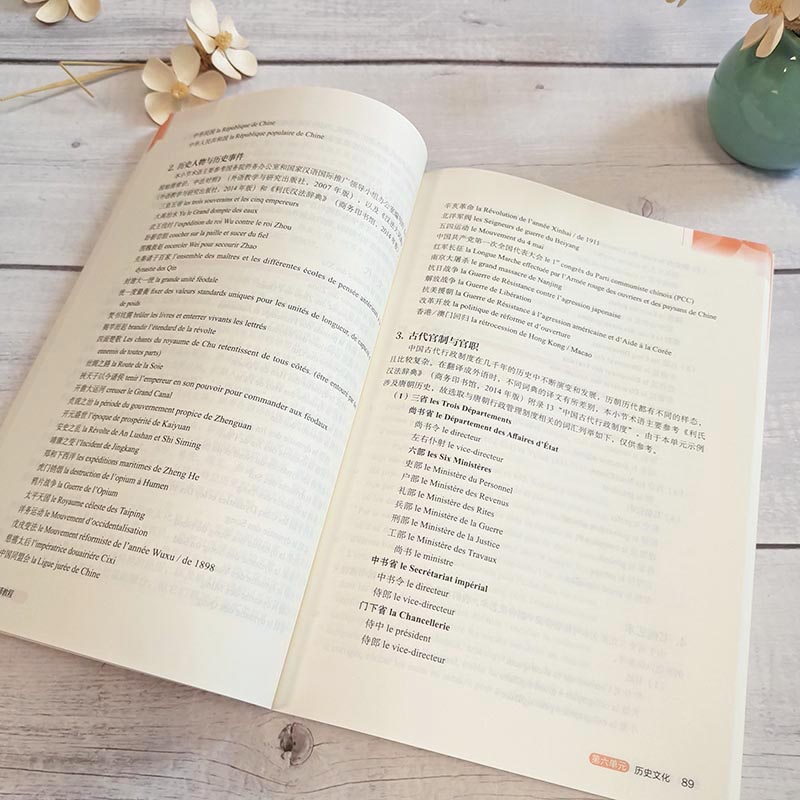 中华民国 la République de Chine
中华人民共和国 la République populaire de Chine
2. 历史人物与历史事件
本小节术语主要参考国务院侨务办公室和国家汉语国际推广领导小组办公室
《外语教学与研究出版社, 2014 年版)和《利氏汉法辞典》(商务印书馆, 2014 年
三皇五帝 les trois souverains et les cinq empereurs
大禹治水 Yu le Grand dompte des eaux
武王伐纣 l'expédition du roi Wu contre le roi Zhou
卧薪尝胆 coucher sur la paille et sucer du fiel
围魏救赵 encercler Wei pour secourir Zhao
先秦诸子百家 l'ensemble des maîtres et les différentes écoles de pensée
dynastie des Qin
封建大一统 la grande unité féodale
统一度量衡 fixer des valeurs standards uniques pour les unités de longueur, de
de poids
焚书坑儒 brûler les livres et enterrer vivants les lettrés
揭竿而起 brandir l'étendard de la révolte
四面楚歌 Les chants du royaume de Chu retentissent de tous côtés. (être
ennemis de toutes parts)
丝绸之路 la Route de la Soie
挟天子以令诸侯 tenir l'empereur en son pouvoir pour commander aux féodaux
开凿大运河 creuser le Grand Canal
贞观之治 la période du gouvernement propice de Zhenguan
开元盛世 l'époque de prospérité de Kaiyuan
安史之乱 la Révolte de An Lushan et Shi Siming
靖康之变 l'incident de Jingkang
郑和下西洋 les expéditions maritimes de Zheng He
虎门销烟 la destruction de l'opium à Humen
鸦片战争 la Guerre de l'Opium
太平天国 le Royaume céleste des Taiping
洋务运动 le Mouvement d'occidentalisation
戊戌变法 le Mouvement réformiste de l'année Wuxu / de 1898
慈禧太后 l'impératrice douairière Cixi
中国同盟会 la Ligue jurée de Chine
教程
辛亥革命 la Révolution de l'année Xinhai / de 1911
北洋军阀 les Seigneurs de guerre du Beiyang
五四运动 le Mouvement du 4 mai
中国共产党第一次全国代表大会 le 1er congrès du Parti communiste chinois (PCC)
红军长征 la Longue Marche effectuée par l'Armée rouge des ouvriers et des paysans de Chine
南京大屠杀 le grand massacre de Nanjing
抗日战争 la Guerre de Résistance contre l'agression japonaise
解放战争 la Guerre de Libération
抗美援朝 la Guerre de Résistance à l'agression américaine et d'Aide à la Corée
改革开放 la politique de réforme et d'ouverture
香港/澳门回归 la rétrocession de Hong Kong / Macao
3. 古代官制与官职
中国古代行政制度在几千年的历史中不断演变和发展, 历朝历代都有不同的样态,
且比较复杂。在翻译成外语时, 不同词典的译文有所差别, 本小节术语主要参考《利氏
汉法辞典》(商务印书馆, 2014 年版)附录 13“中国古代行政制度”。由于本单元示例
涉及唐朝历史, 故选取与唐朝行政管理制度相关的词汇列举如下, 仅供参考。
(1) 三省 les Trois Départements
尚书省 le Département des Affaires d'État
尚书令 le directeur
左右仆射 le vice-directeur
六部 les Six Ministères
吏部 le Ministère du Personnel
户部 le Ministère des Revenus
礼部 le Ministère des Rites
兵部 le Ministère de la Guerre
刑部 le Ministère de la Justice
工部 le Ministère des Travaux
尚书 le ministre
中书省 le Secrétariat impérial
中书令 le directeur
侍郎 le vice-directeur
门下省 la Chancellerie
侍中 le président
侍郎 le vice-directeur
第六单元 历史文化 89